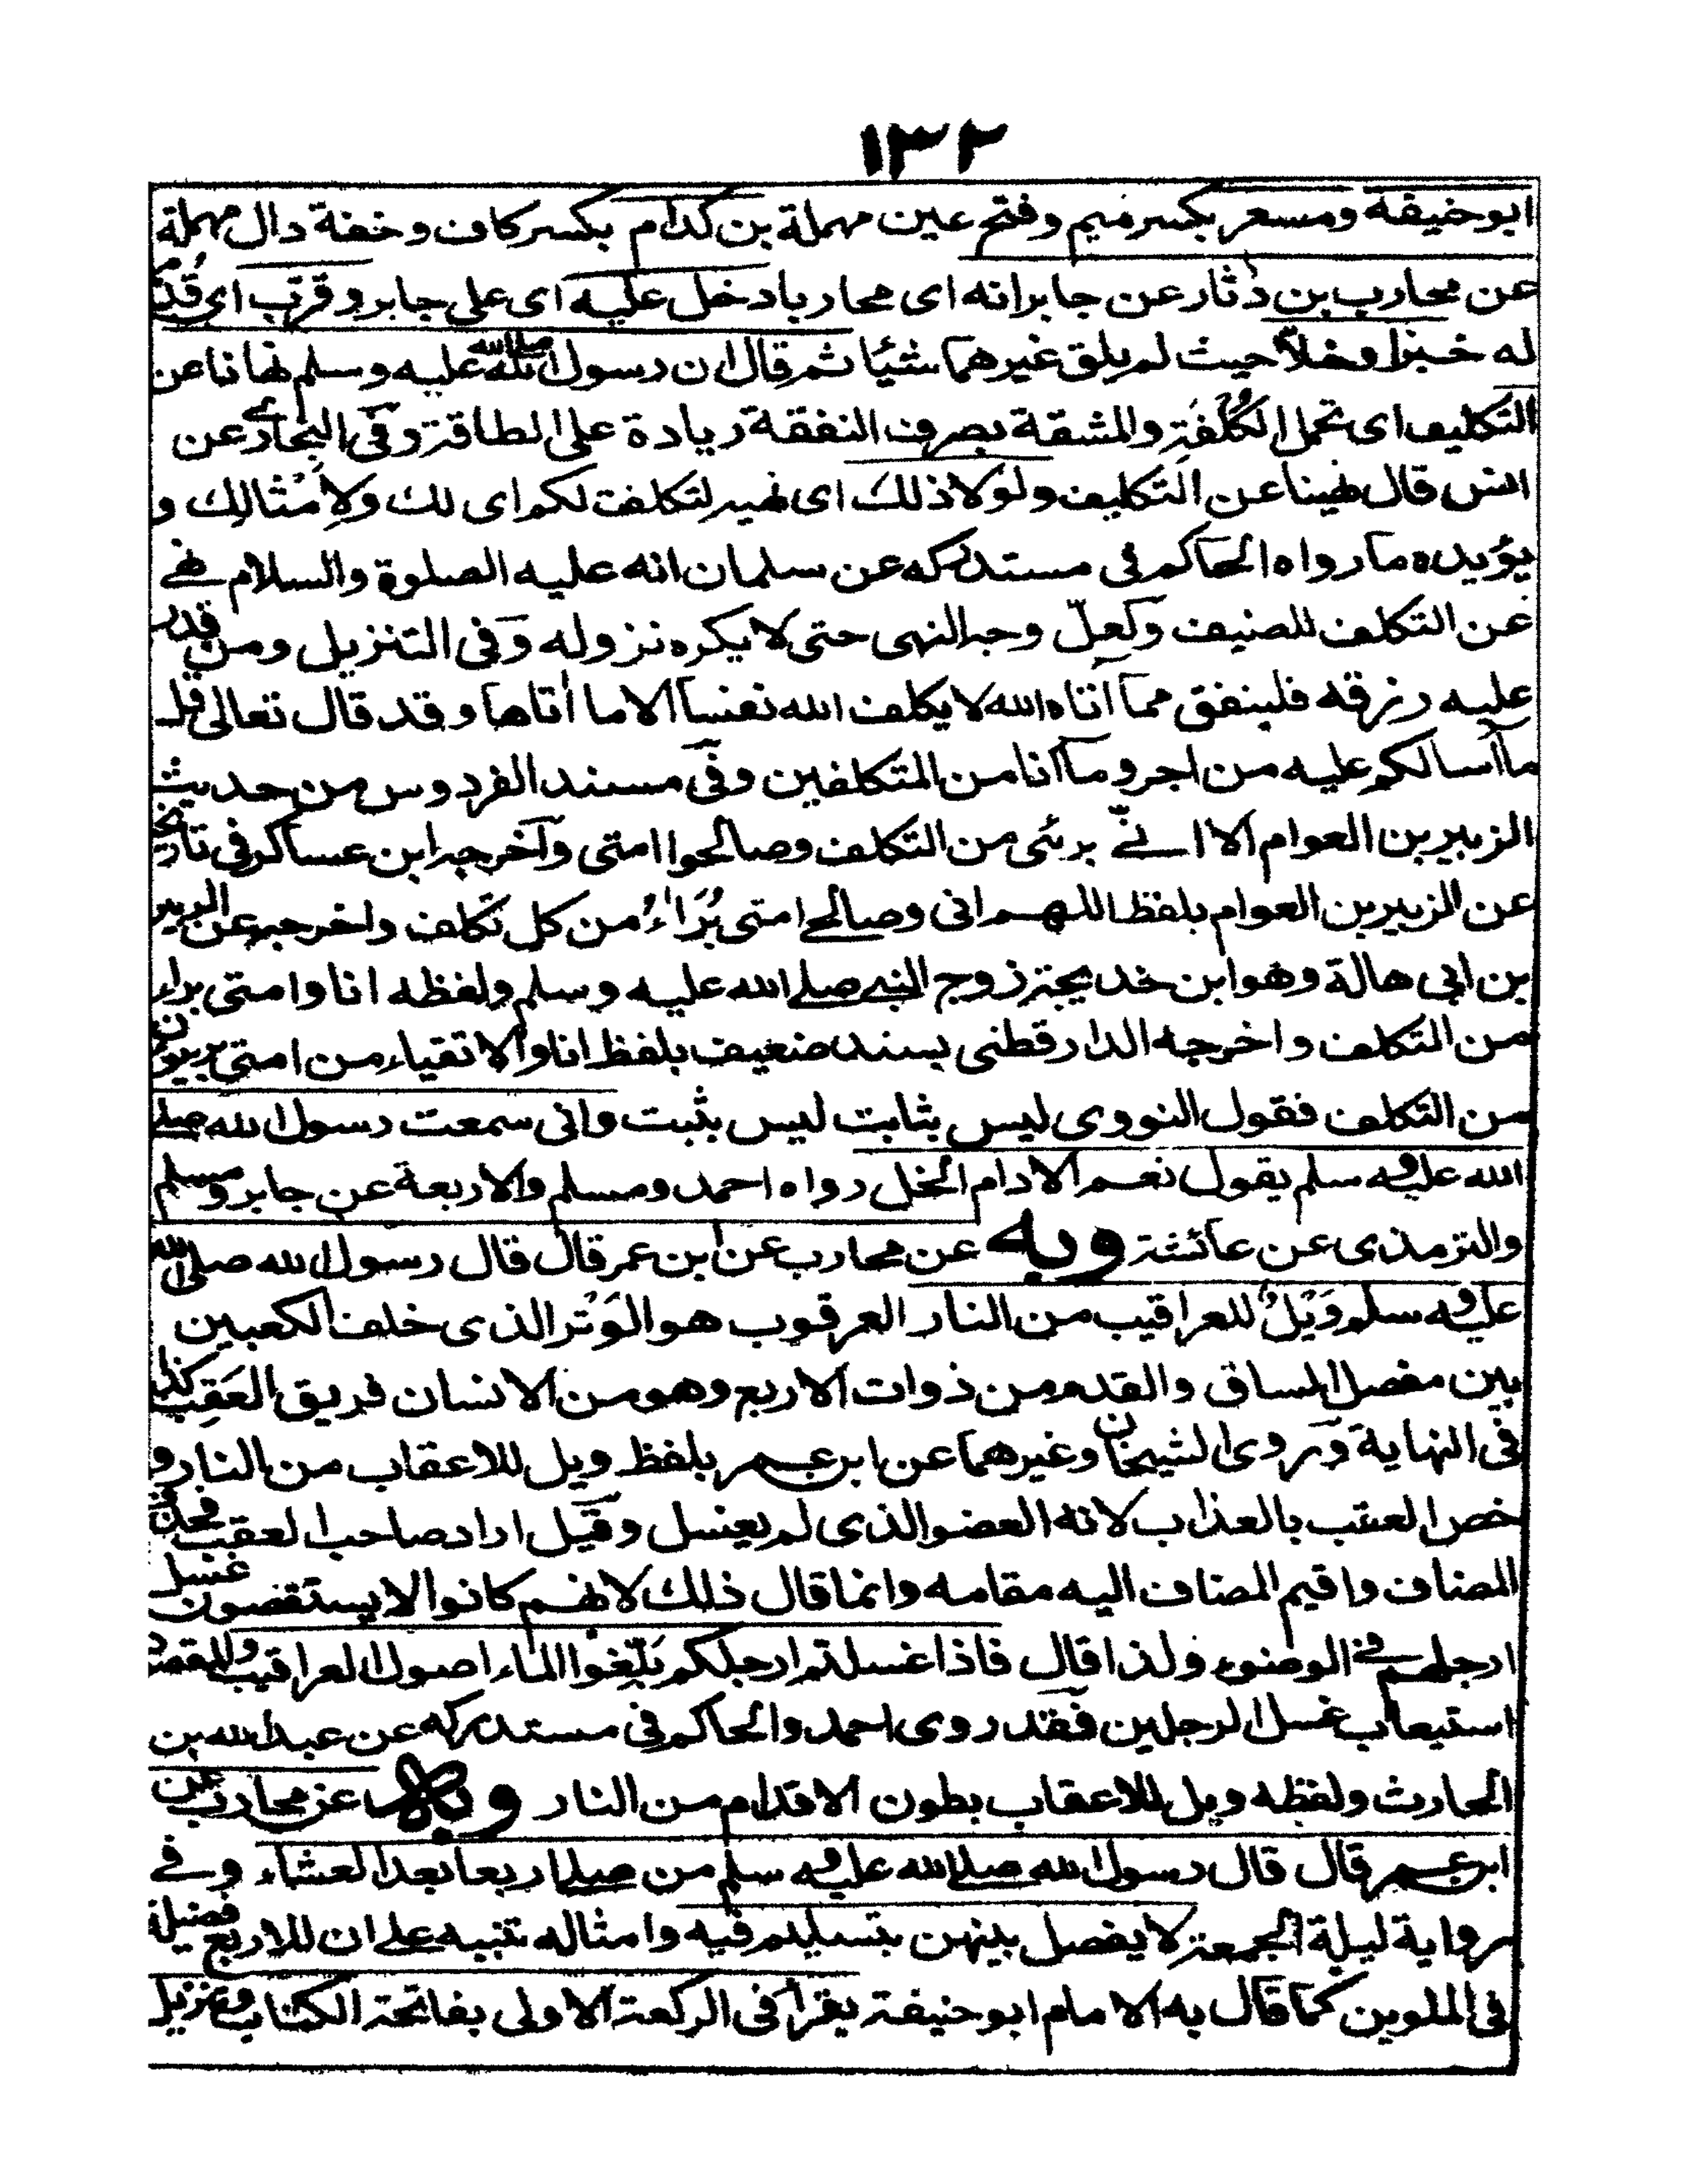 ١٣٢
ابوحنيفة ومسعر بكسر ميم وفتح عين مهملة بن كدام بكسر كاف وخفة دال مهملة
عن محارب بن دثار عن جابر انه اى محاربا دخل عليه اى على جابر وقرب اى قدم
له خبزا وخلا حيث لم يلق غيرهما شئيا ثم قال ان رسول الله صلى الله عليه وسلم نهانا عن
التكليف اى تحمل الكلفة والمشقة بصرف النفقة زيادة على الطاقة وفى البخارى عن
انس قال نهينا عن التكليف ولولا ذلك اى نهيه لتكلفت لكم اى لك ولامثالك و
يؤيده ما رواه الحاكم فى مستدركه عن سلمان انه عليه الصلوة والسلام نهى
عن التكلف للضيف ولعل وجه النهى حتى لا يكره نزوله وفى التنزيل ومن قدر
عليه رزقه فلينفق مما آتاه الله لا يكلف الله نفسا الا ما أتاها وقد قال تعالى قل
ما أسالكم عليه من اجر وما انا من المتكلفين وفى مسند الفردوس من حديث
الزبير بن العوام الا انى برئى من التكلف وصالحوا امتى وآخرجه ابن عساكر فى تاريخ
عن الزبير بن العوام بلفظ اللهم انى وصالحى امتى براء من كل تكلف واخرجه عن الزبير
بن ابى هالة وهو ابن خديجة زوج النبى صلى الله عليه وسلم ولفظه انا وامتى براء
من التكلف واخرجه الدارقطنى بسند ضعيف بلفظ انا والاتقياء من امتى بريون
من التكلف فقول النووى ليس بثابت ليس بثبت وانى سمعت رسول الله صلى
الله عليه وسلم يقول نعم الادام الخل رواه احمد ومسلم والاربعة عن جابر ومسلم
والترمذى عن عائشة وبه عن محارب عن ابن عمر قال قال رسول الله صلى الله
عليه وسلم ويل للعراقيب من النار العرقوب هو الوتر الذى خلف الكعبين
بين مفصل الساق والقدم من ذوات الاربع وهو من الانسان فريق العقب كذا
فى النهاية وروى الشيخان وغيرهما عن ابن عمر بلفظ ويل للاعقاب من النار و
خص العقب بالعذاب لانه العضو الذى لم يغسل وقيل اراد صاحب العقب فحذف
المضاف واقيم المضاف اليه مقامه وانما قال ذلك لانهم كانوا لا يستقصون غسل
ارجلهم فى الوضوء ولذا قال فاذا غسلتم ارجلكم بلغوا الماء اصول العراقيب والمقصود
استيعاب غسل الرجلين فقد روى احمد والحاكم فى مستدركه عن عبد الله بن
الحارث ولفظه ويل للاعقاب بطون الاقدام من النار وبه عن محارب عن
ابن عمر قال قال رسول الله صلى الله عليه وسلم من صلى اربعا بعد العشاء وفى
رواية ليلة الجمعة لا يفصل بينهن بتسليم فيه وامثاله تنبيه على ان للاربع فضيلة
فى الملوين كما قال به الامام ابو حنيفة يقرأ فى الركعة الاولى بفاتحة الكتاب وتنزيل